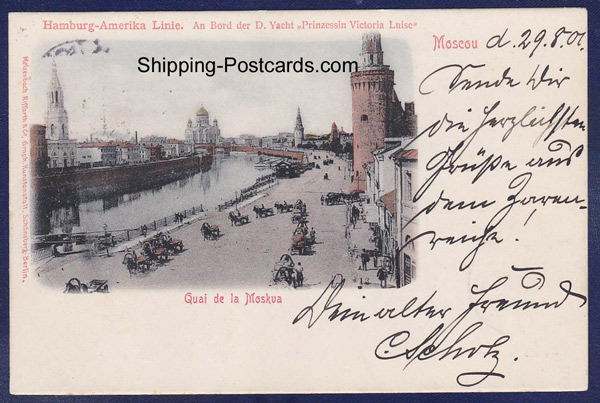 Hamburg-Amerika Linie. An Bord der D. Yacht „Prinzessin Victoria Luise“
Shipping-Postcards.com
Moscou d. 29.8.01.
Sende Dir
die herzlichsten
Grüße aus
dem Zaren-
reiche!
Dein alter Freund
C. Scholz.
Quai de la Moskva
Meisenbach Riffarth & Co., Graph. Kunstanstalt, Schöneberg-Berlin.